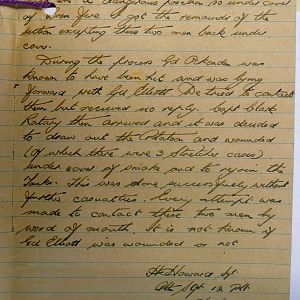 in a dangerous position so under cover
of when fire I got the remainder of the
section excepting these two men back under
cover.
During the process Gd was
known to have been hit and was lying
forward with Gd Elliott. We tried to contact
them but received no reply. Capt Clark
then arrived and it was decided
to draw out the Platoon and wounded
(of which there were 3 stretcher cases)
under cover of smoke and to rejoin the
Tanks. This was done successfully without
further casualties. Every attempt was
made to contact these two men by
word of mouth. It is not known if
Gd Elliott was wounded or not
Howard Sgt
Sgt 12 Plt